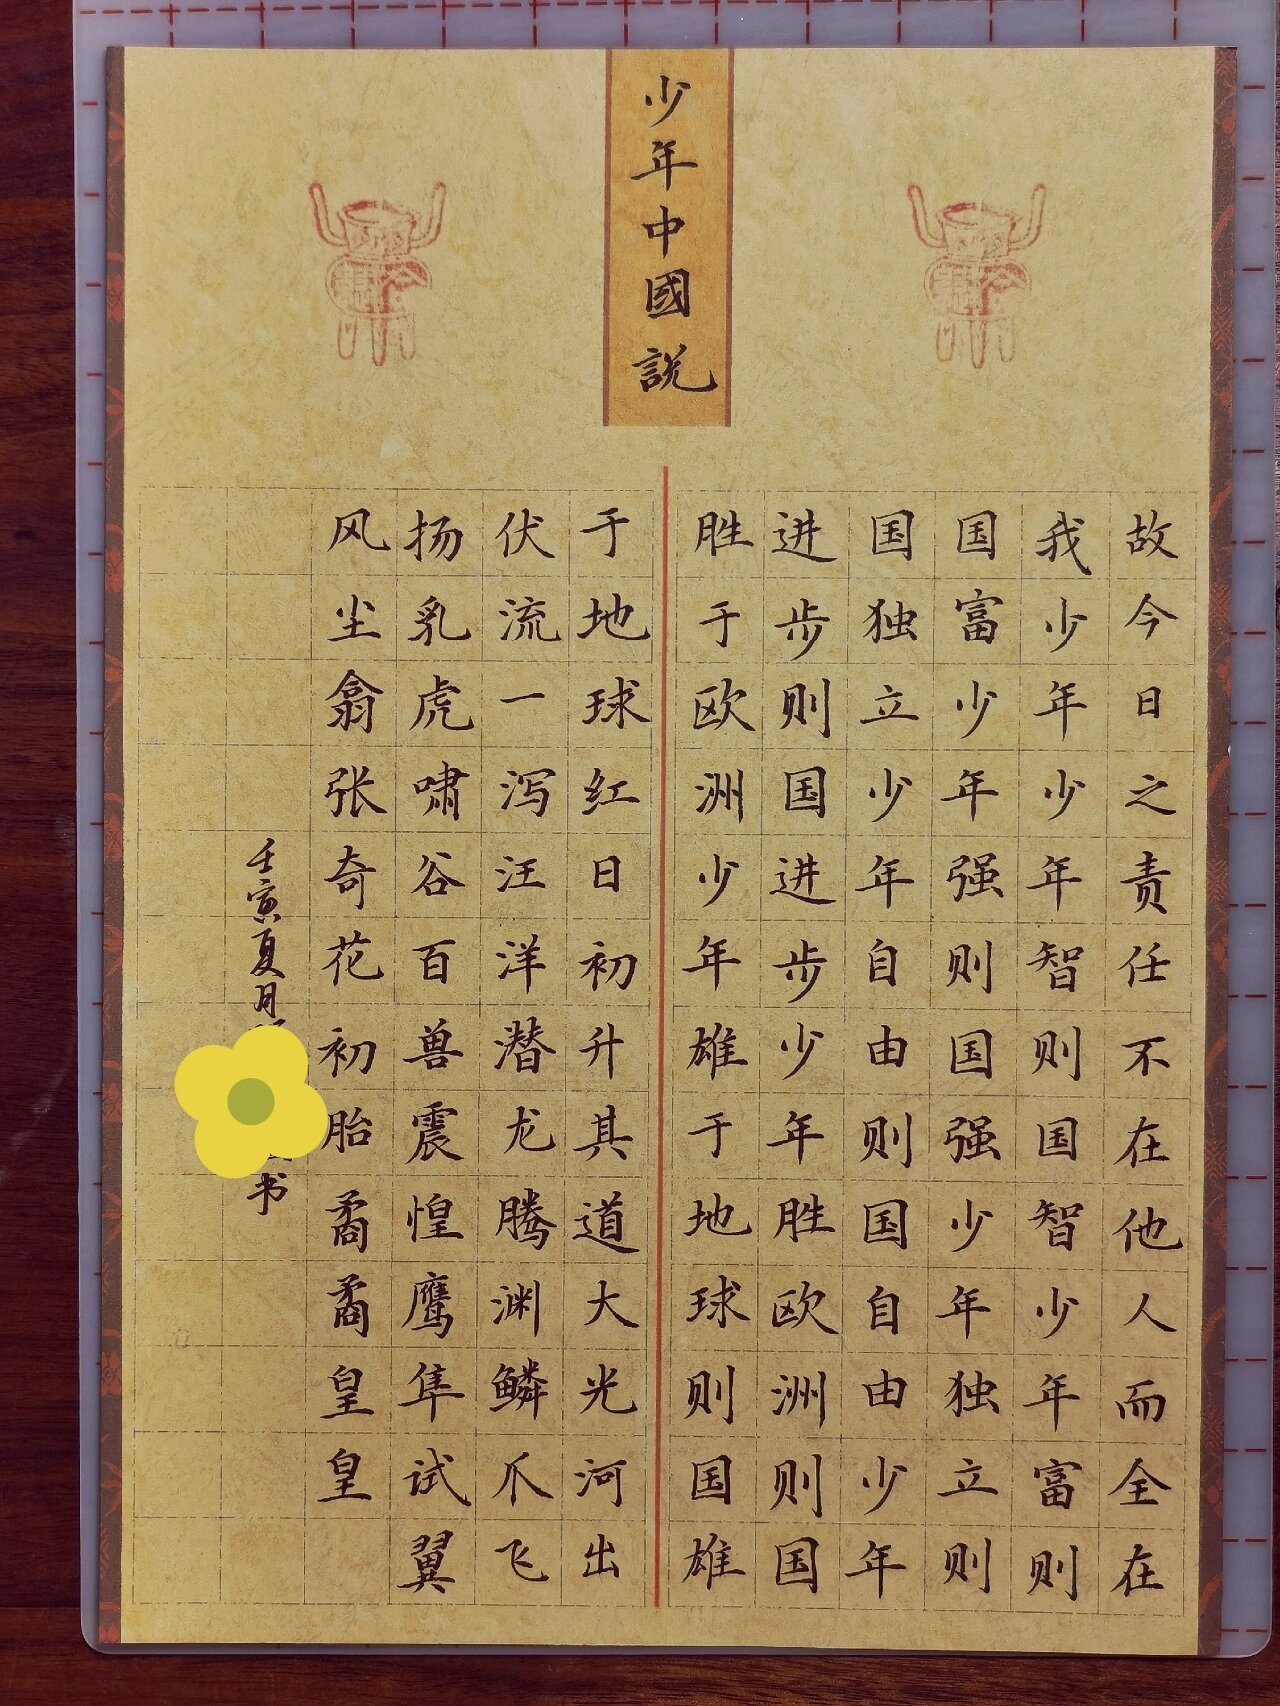 少年中國説
故今日之责任不在他人而全在
我少年少年智则国智少年富则
国富少年强则国强少年独立则
国独立少年自由则国自由少年
进步则国进步少年胜欧洲则国
胜于欧洲少年雄于地球则国雄
于地球红日初升其道大光河出
伏流一泻汪洋潜龙腾渊鳞爪飞
扬乳虎啸谷百兽震惶鹰隼试翼
风尘翕张奇花初胎矞矞皇皇
壬寅夏月
书